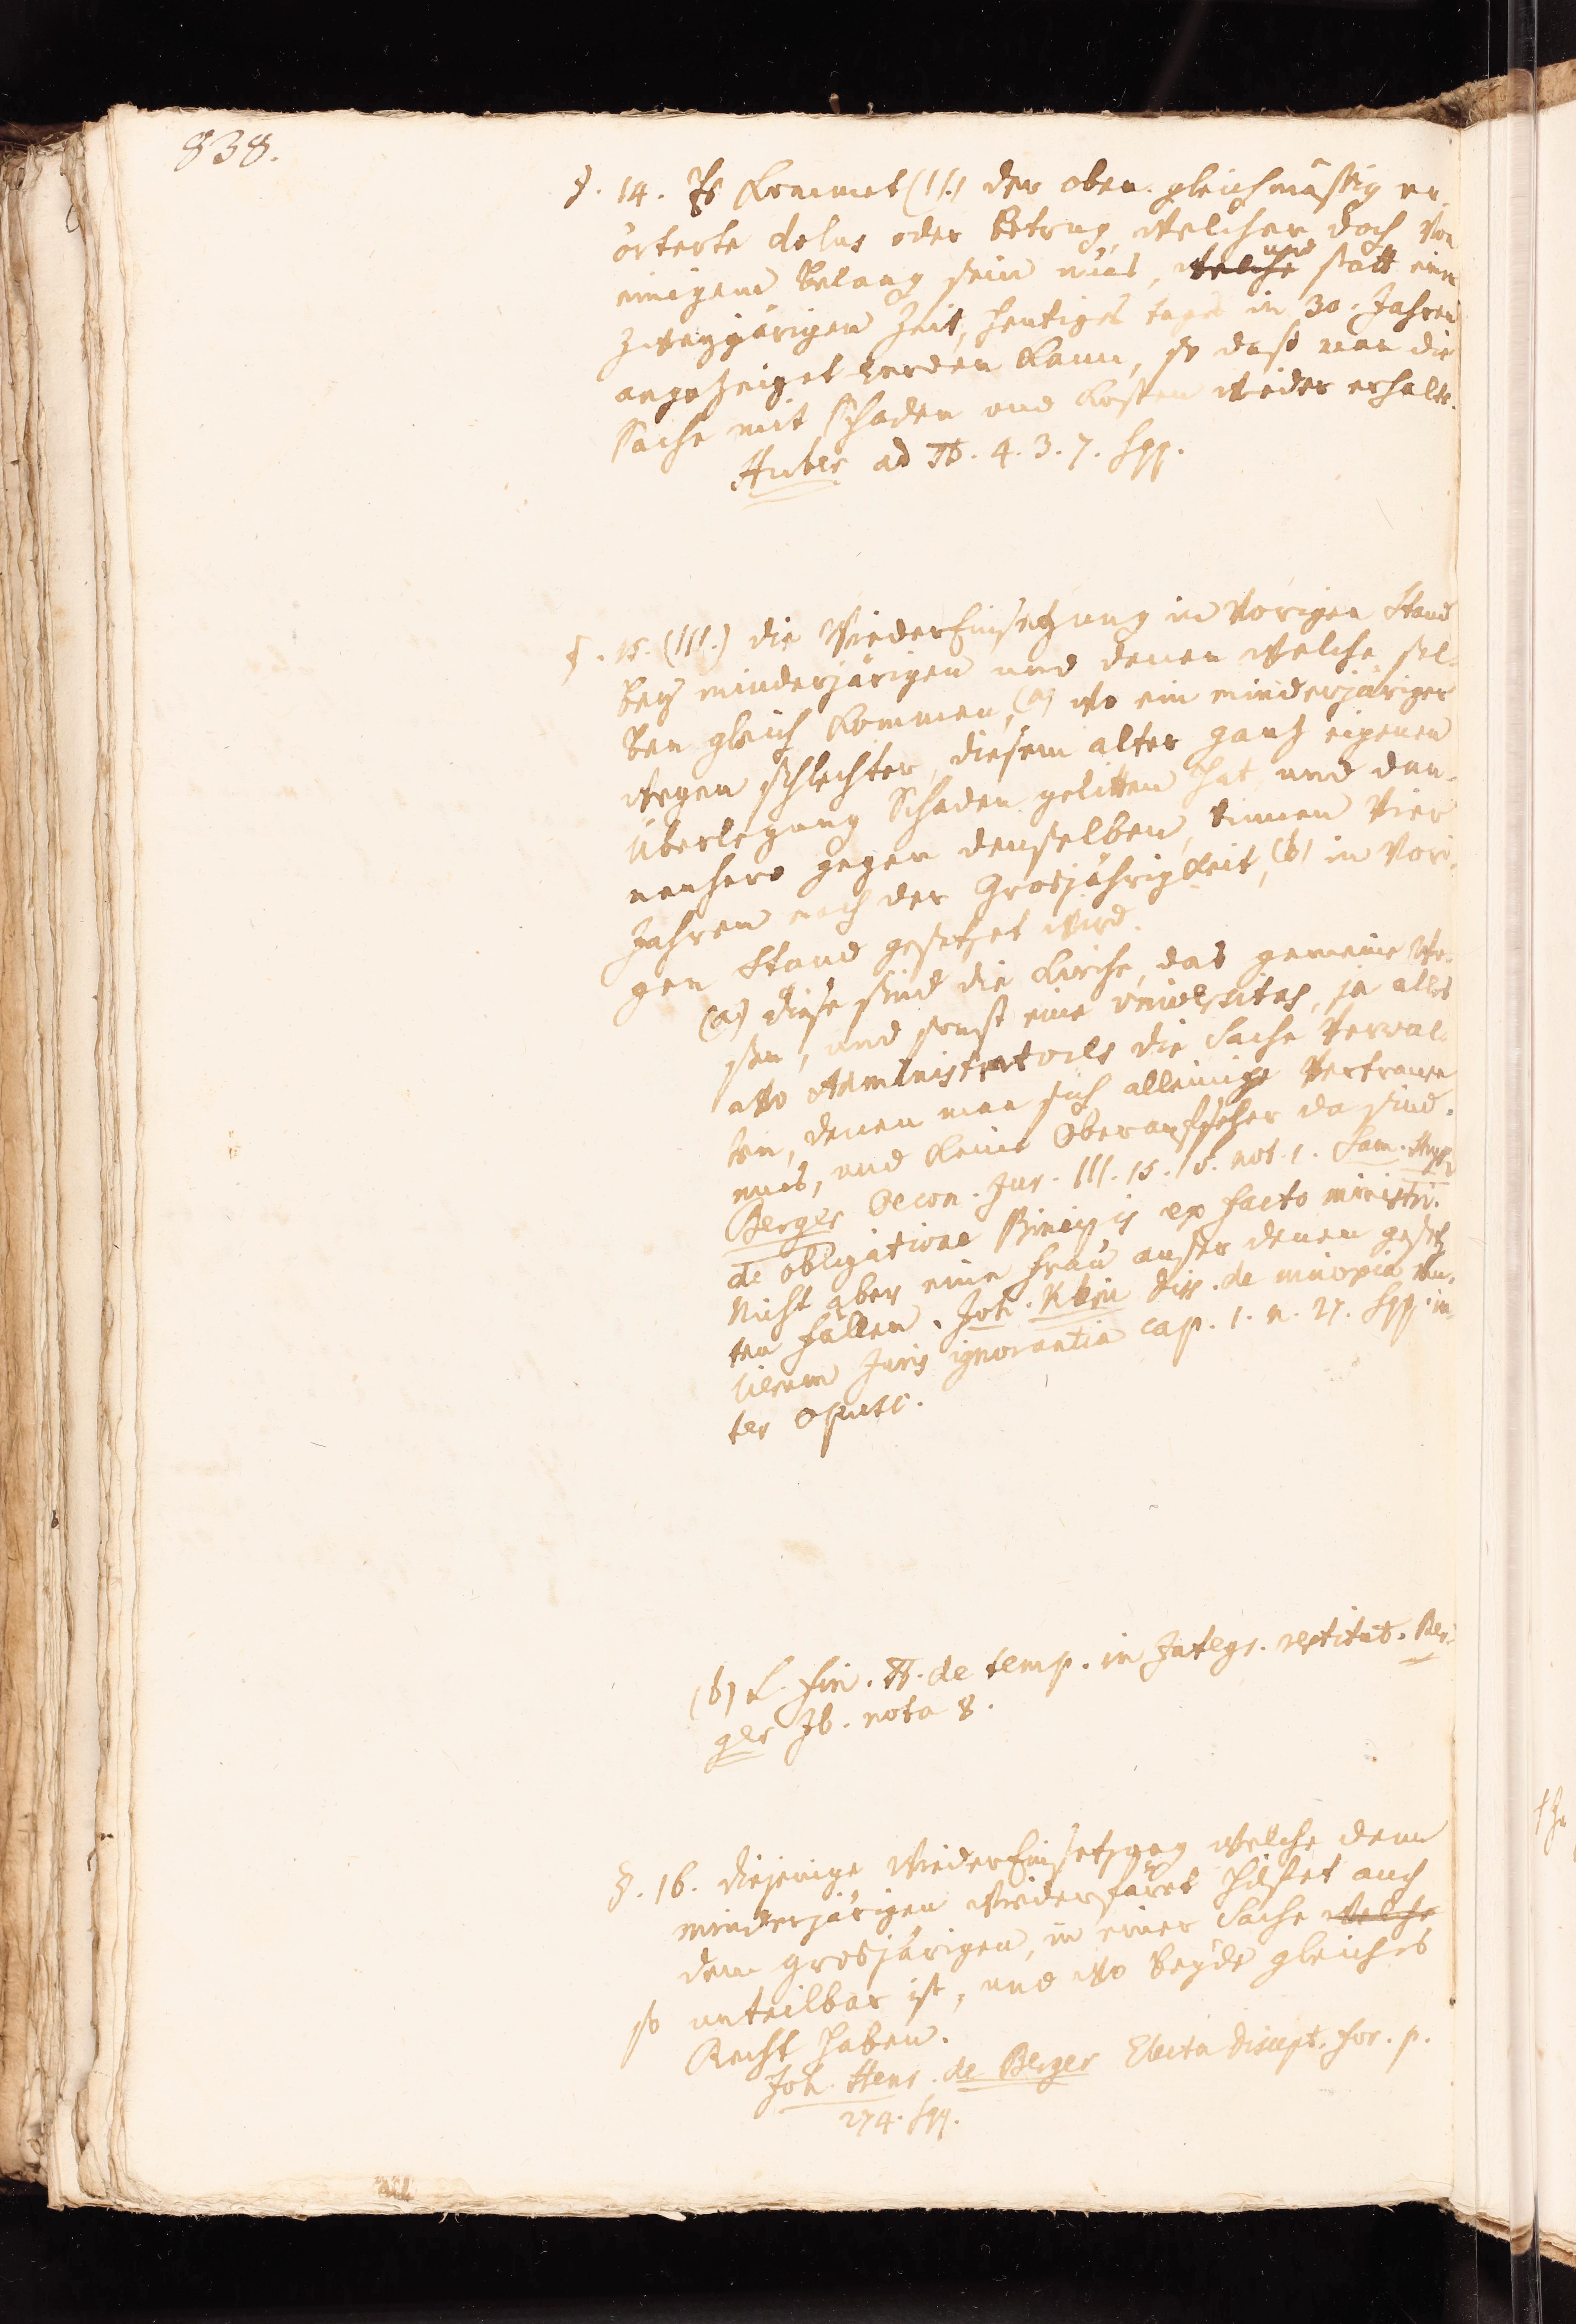 838.
§. 14. Es kommet (II.) der oben gleichmäßig er-
örterte dolus oder Betrug, welcher doch von
einigem Belang sein mus, welche und statt einer
zweyjärigen Zeit, heutiges tages in 30. Jahren
angezeiget werden kann, so daß man die
Sache mit Schaden und Kosten wieder erhalte.
Huber ad π. 4. 3. 7. sqq.
§. 15. (III.) die WiederEinsetzung in vorigen Stand
bey minderjärigen und denen welche sel-
ben gleich kommen, (a) wo ein minderjäriger
wegen schlechter, diesem alter ganz eigenen
Überlegung Schaden gelitten hat, und dan-
nenhero gegen denselben, binnen vier
Jahren nach der Grosjährigkeit, (b) in vori-
gen Stand gesetzet wird.
(a) diese sind die Kirche, das gemeine We-
sen, und sonst eine vniversitas, ja alles
wo Administratores die Sache verwal-
ten, denen man sich alleinige vertrauen
mus, und keine Oberaufseher da sind.
Berger Oecon. Jur. III. 15. 15. not. 1. Sam. Stryk
de obligatione Principis ex facto ministri.
Nicht aber eine Frau auser denen gesetz-
ten Fällen. Joh. Klein diss. de inuopia mu-
lierum Juris ignorantia cap. 1. n. 27. sqq. in-
ter opusc.
(b) L. fin. π. de temp. in Integr. restitut. Ber-
ger Ib. nota 8.
§. 16. diejenige WiederEinsetzung welche dem
minderjärigen wiederfäret hilfet auch
dem grosjärigen, in einer Sache welche
so unteilbar ist, und wo beyde gleiches
Recht haben.
Joh. Henr. de Berger Electa Discept. for. p.
274. sqq.